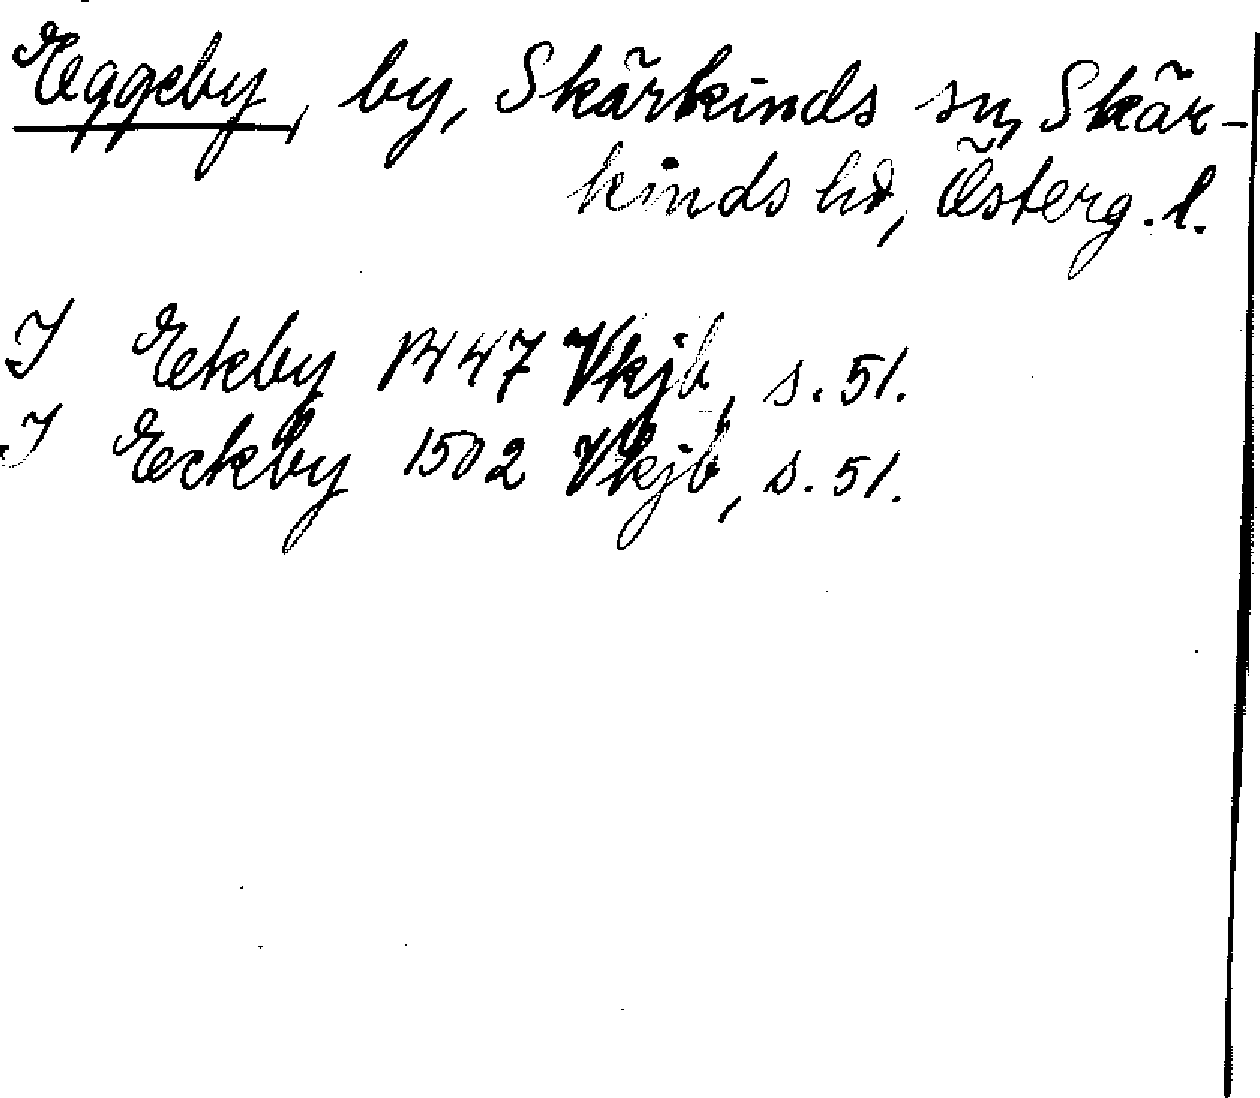 Eggeby, by, Skärkinds sn, Skär-
kinds hd, Österg. l.
I Ekby 1447 Vkjb, s. 51.
I Eckby 1502 Vkjb, s. 51.